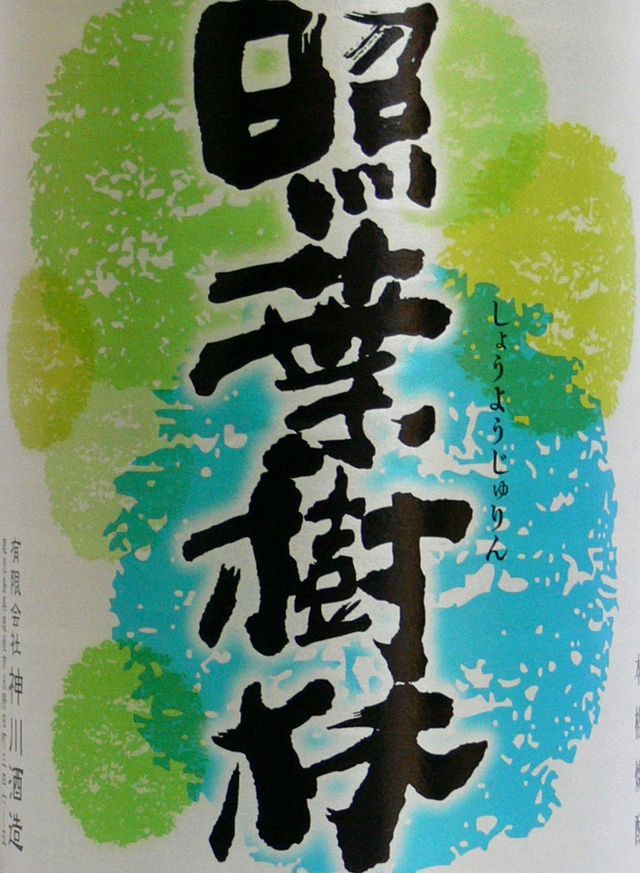 照葉樹林
しょうようじゅりん
有限会社 神川酒造